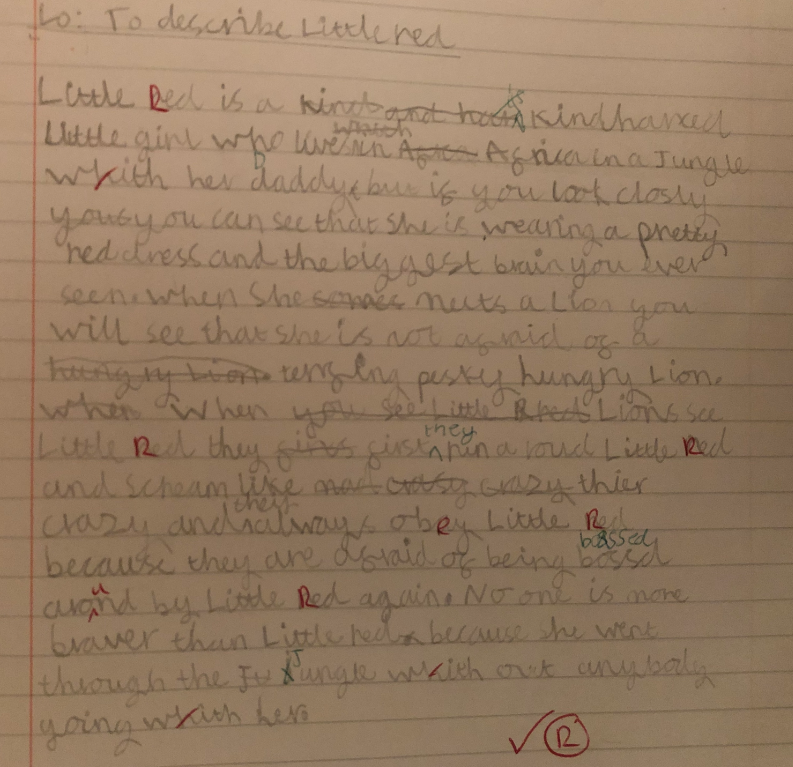 Lo: To describe Little red
Little Red is a kind and is kindharted
little girl who live which in Africa Africa in a Jungle
whith her daddy, but if you look closly
you can see that she is wearing a pretty
red dress and the biggest brain you ever
seen. when she meets a Lion you
will see that she is not afraid of a
hungry Lion pesky hungry Lion.
when When you see Little Red Lions see
Little Red they first they run a roud Little Red
and scream like mad crazy crazy thier
crazy and they always obey Little Red
because they are afraid of being bossd bossed
around by Little Red again. No one is more
braver than Little red because she went
through the Ju Jungle whith out any body
going whith her.
R